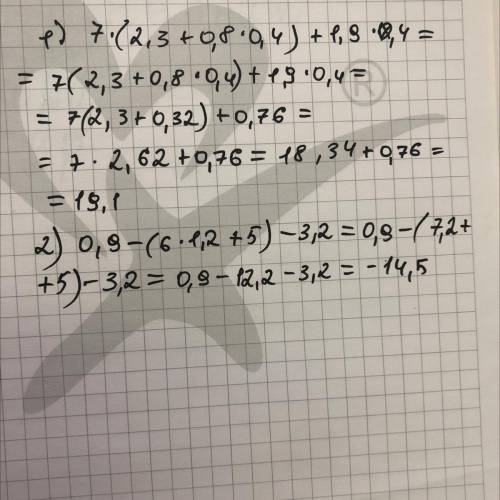 1) 7·(2,3+0,8·0,4)+1,9·0,4=
= 7(2,3+0,8·0,4)+1,9·0,4=
= 7(2,3+0,32)+0,76=
= 7·2,62+0,76=18,34+0,76=
=19,1
2) 0,9-(6·1,2+5)-3,2=0,9-(7,2+
+5)-3,2=0,9-12,2-3,2=-14,5
®